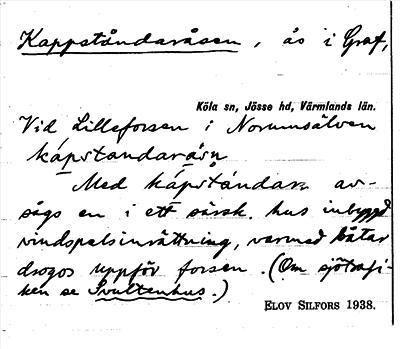 Kappståndaråsen, ås i Graf,
Köla sn, Jösse hd, Värmlands län.
Vid Lilleforsen i Norumsälven
kápstandarásn
Med kápstándarn av-
ságs en i ett särsk. hus inbyggd
vindspelsinrättning, varmed båtar
drogos uppför forsen. (Om sjötrafi-
ken se Svultenhus.)
ELOV SILFORS 1938.